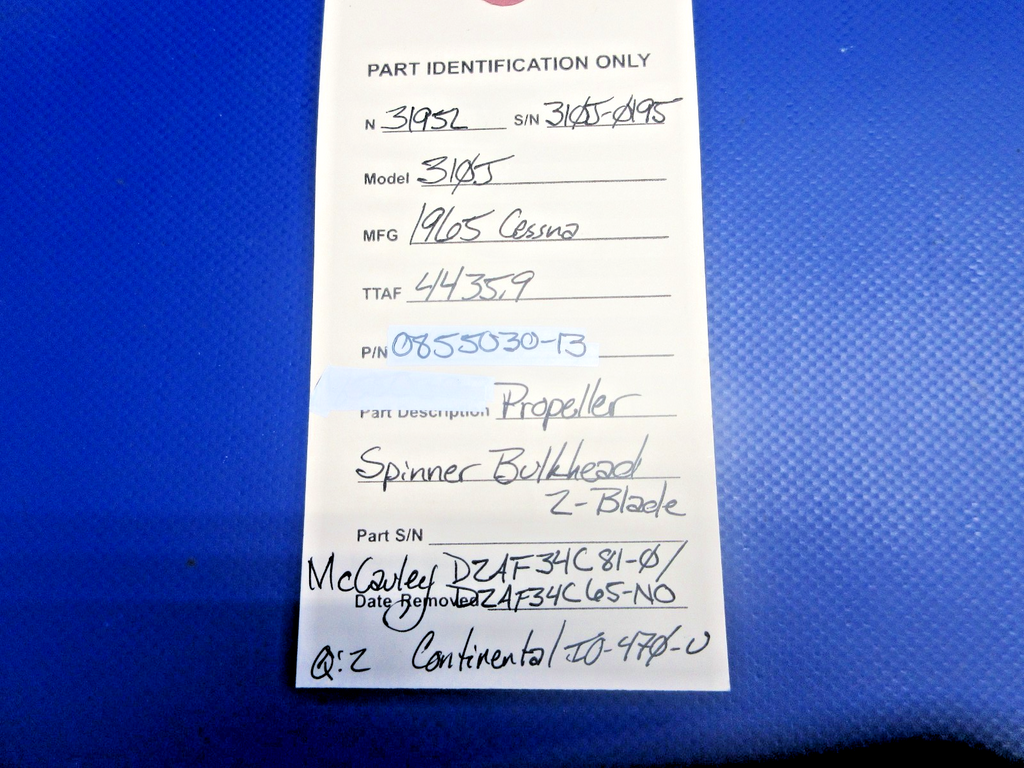 PART IDENTIFICATION ONLY
N 31952 S/N 310J-0195
Model 310J
MFG 1965 Cessna
TTAF 4435.9
P/N 0855030-13
Part Description Propeller
Spinner Bulkhead
2-Blade
Part S/N
McCauley D2AF34C81-0/
Date Removed D2AF34C65-NO
Q:2 Continental IO-470-U